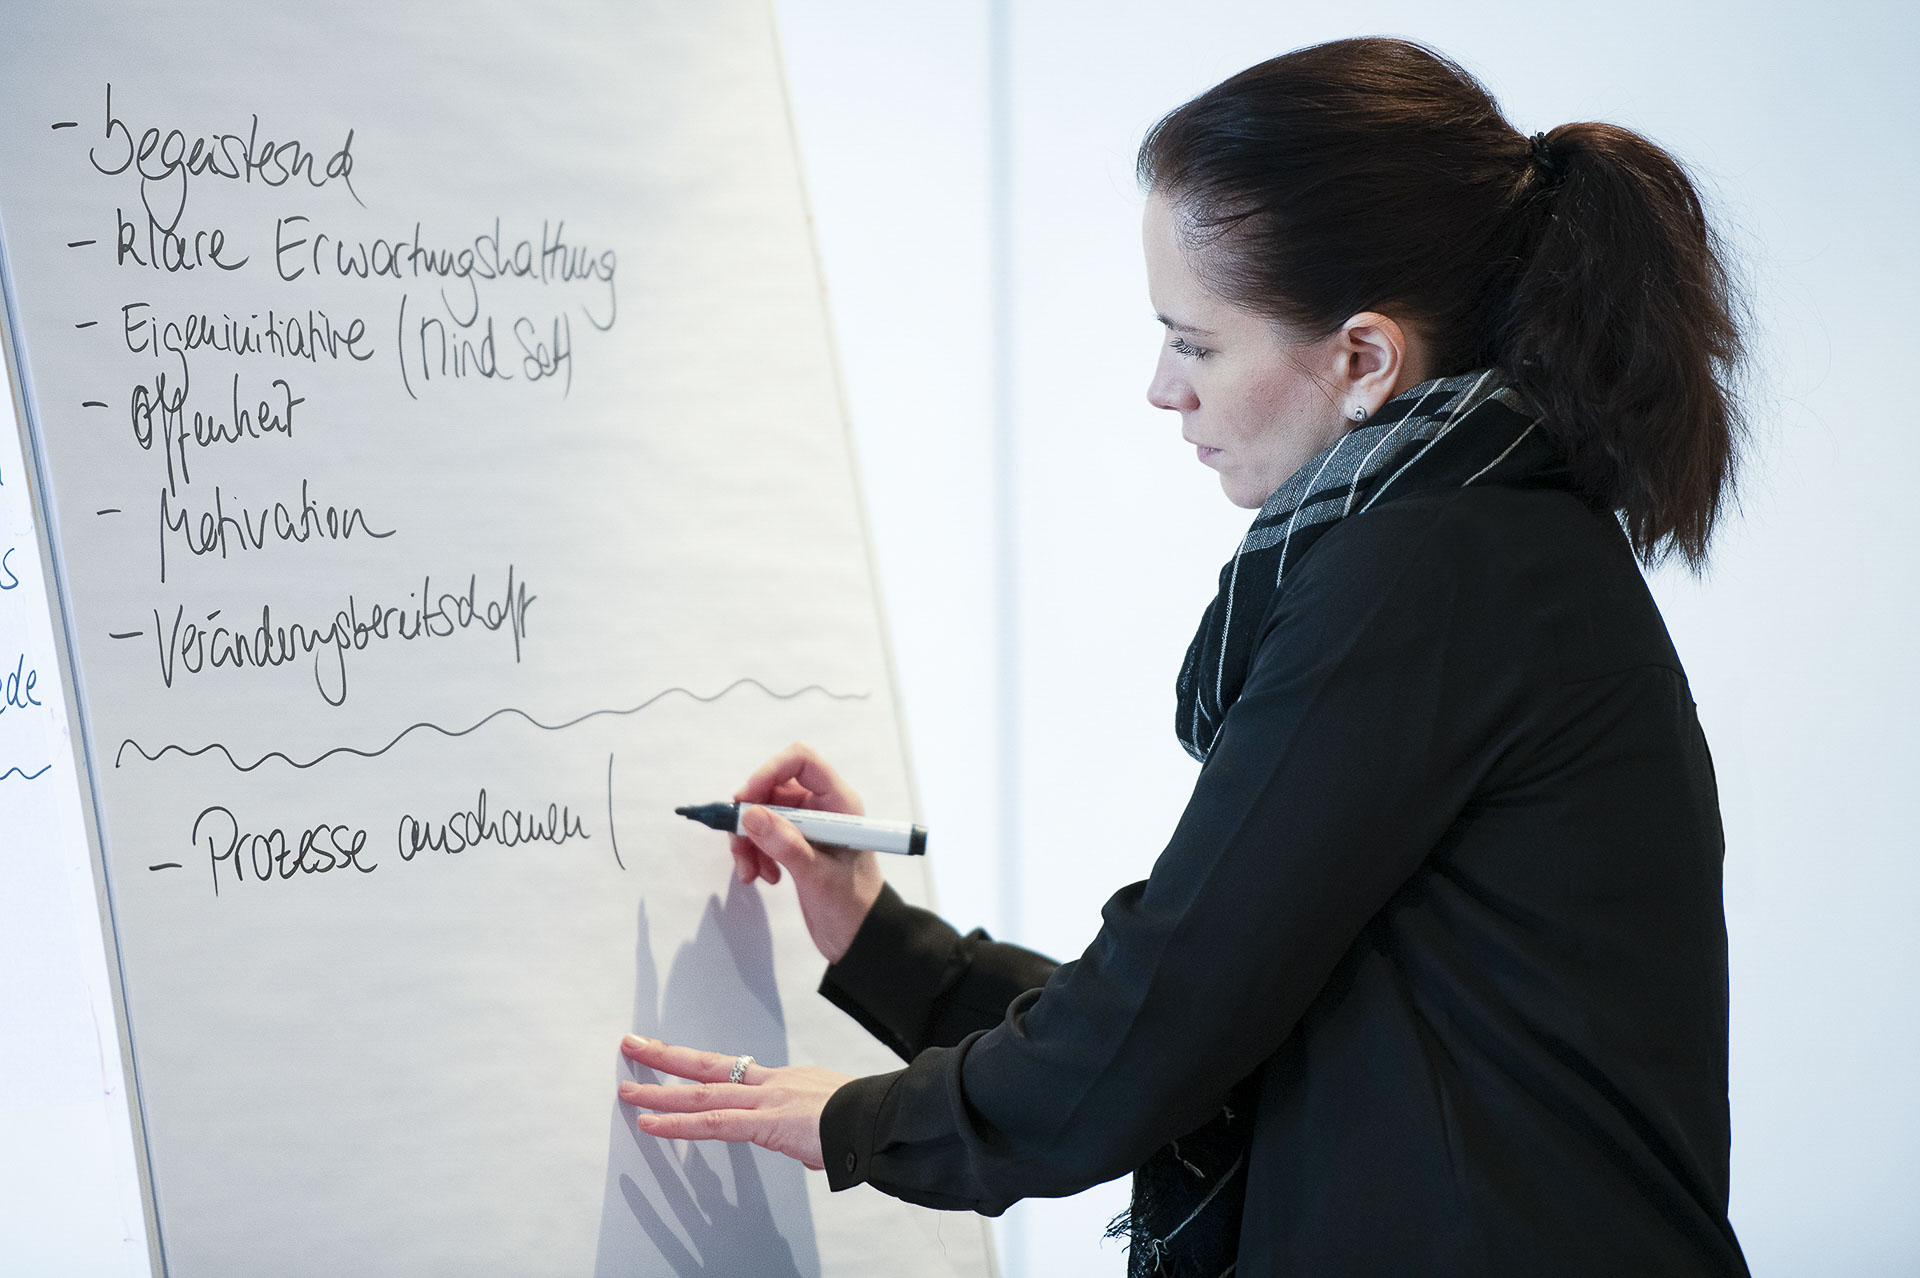 - begeisternd
- klare Erwartungshaltung
- Eigeninitiative (Mind Set)
- Offenheit
- Motivation
- Veränderungsbereitschaft
- Prozesse anschauen |
s
ede